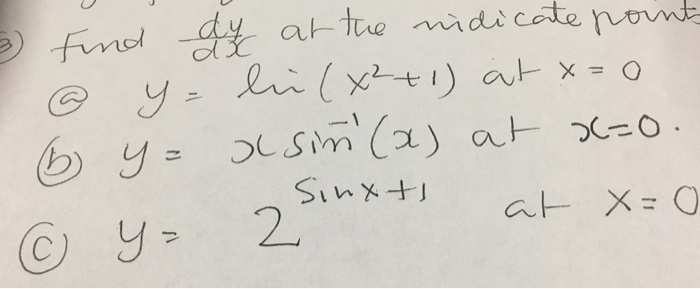 3) Find dy/dx at the indicate point
ⓐ y = ln(x²+1) at x = 0
ⓑ y = x sin⁻¹(x) at x=0.
ⓒ y = 2^(sinx+1) at x=0